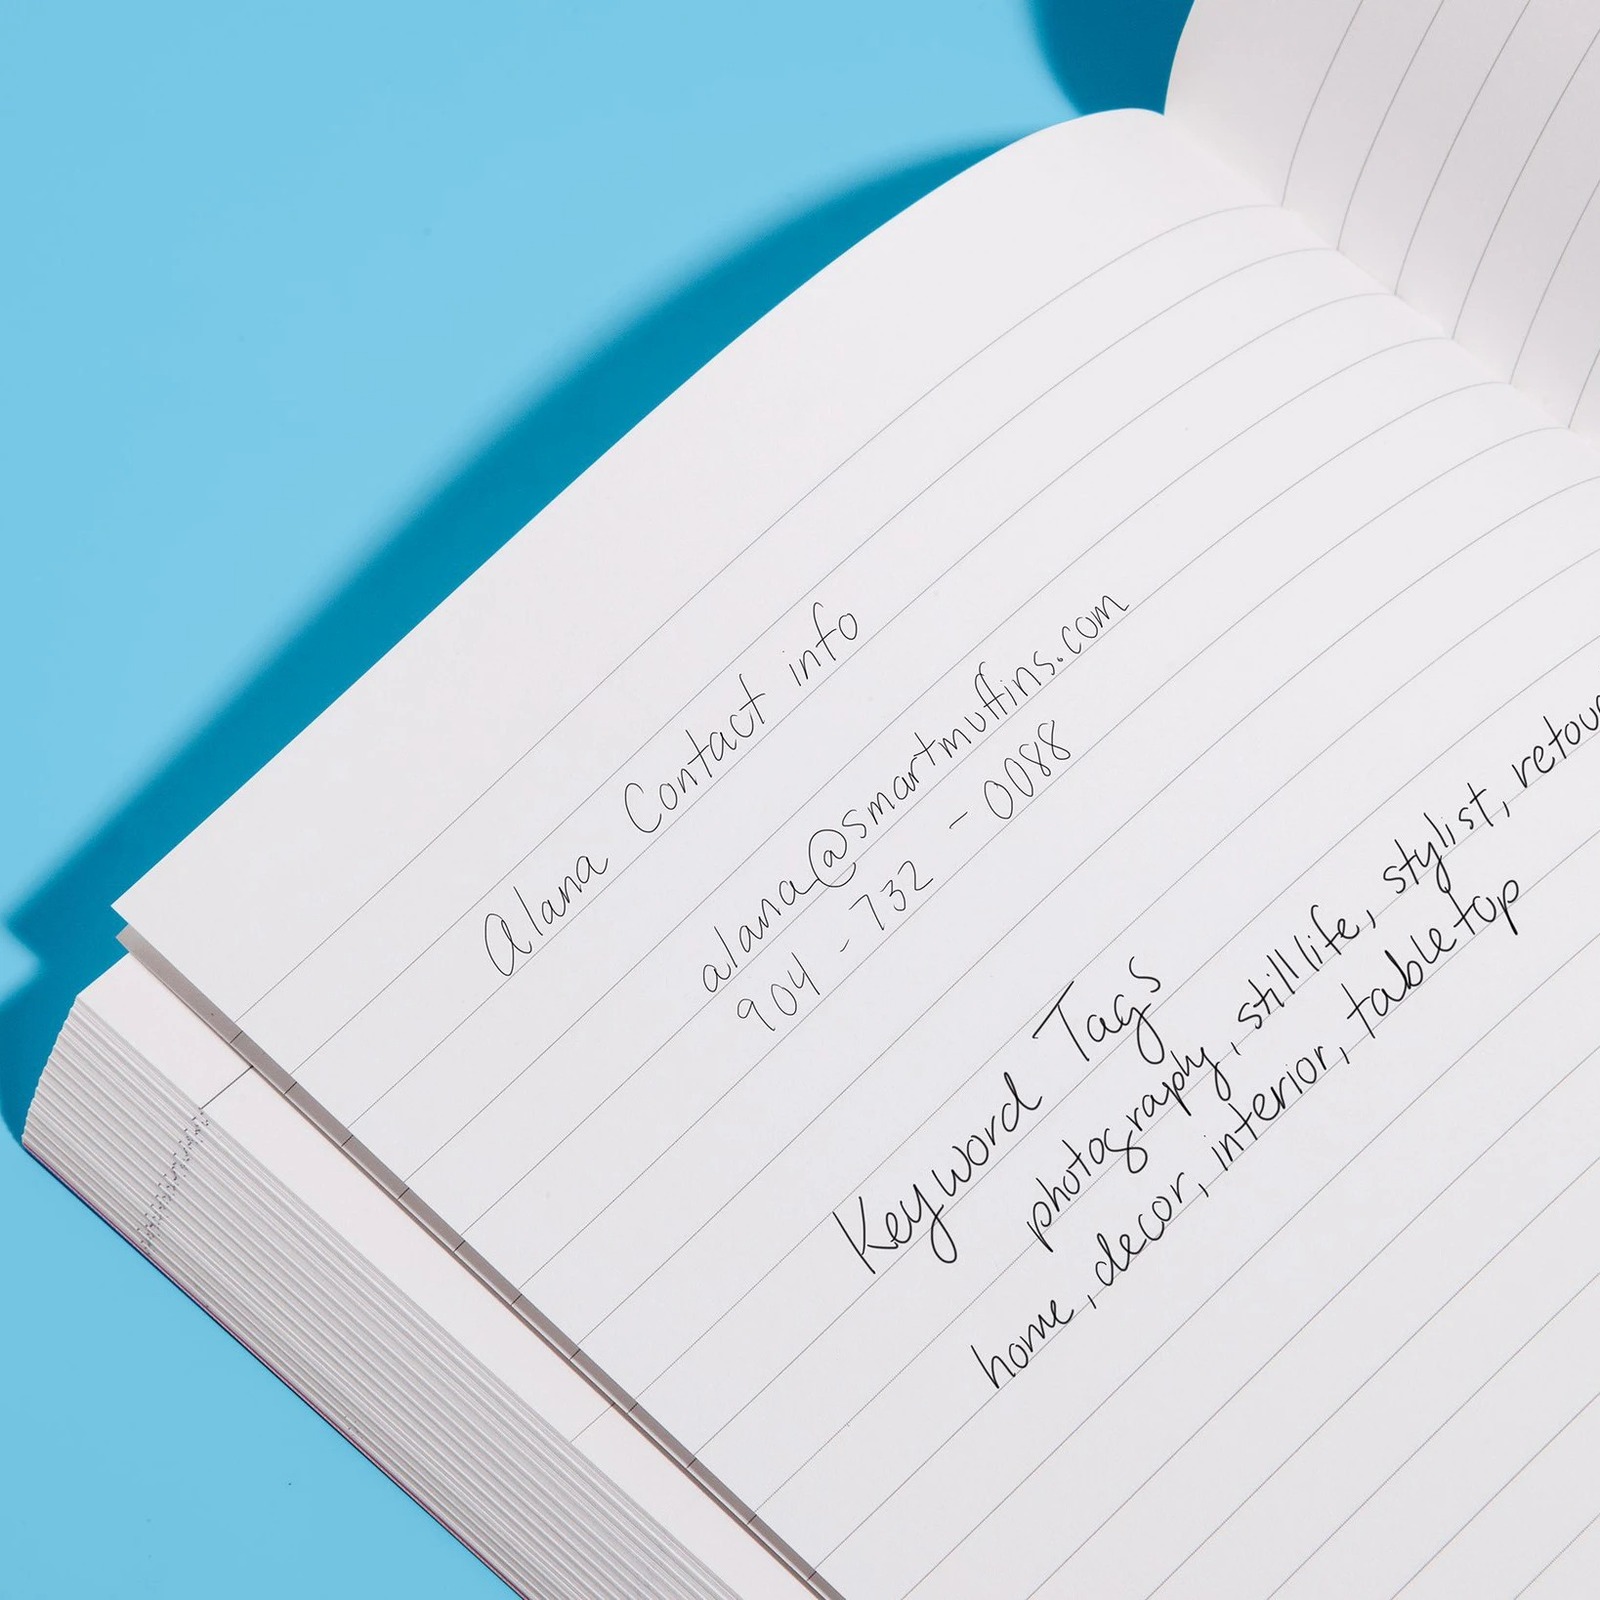 Alana Contact info
alana@smartmuffins.com
904 - 732 - 0088
Keyword Tags
photography, still life, stylist,
home, decor, interior, tabletop